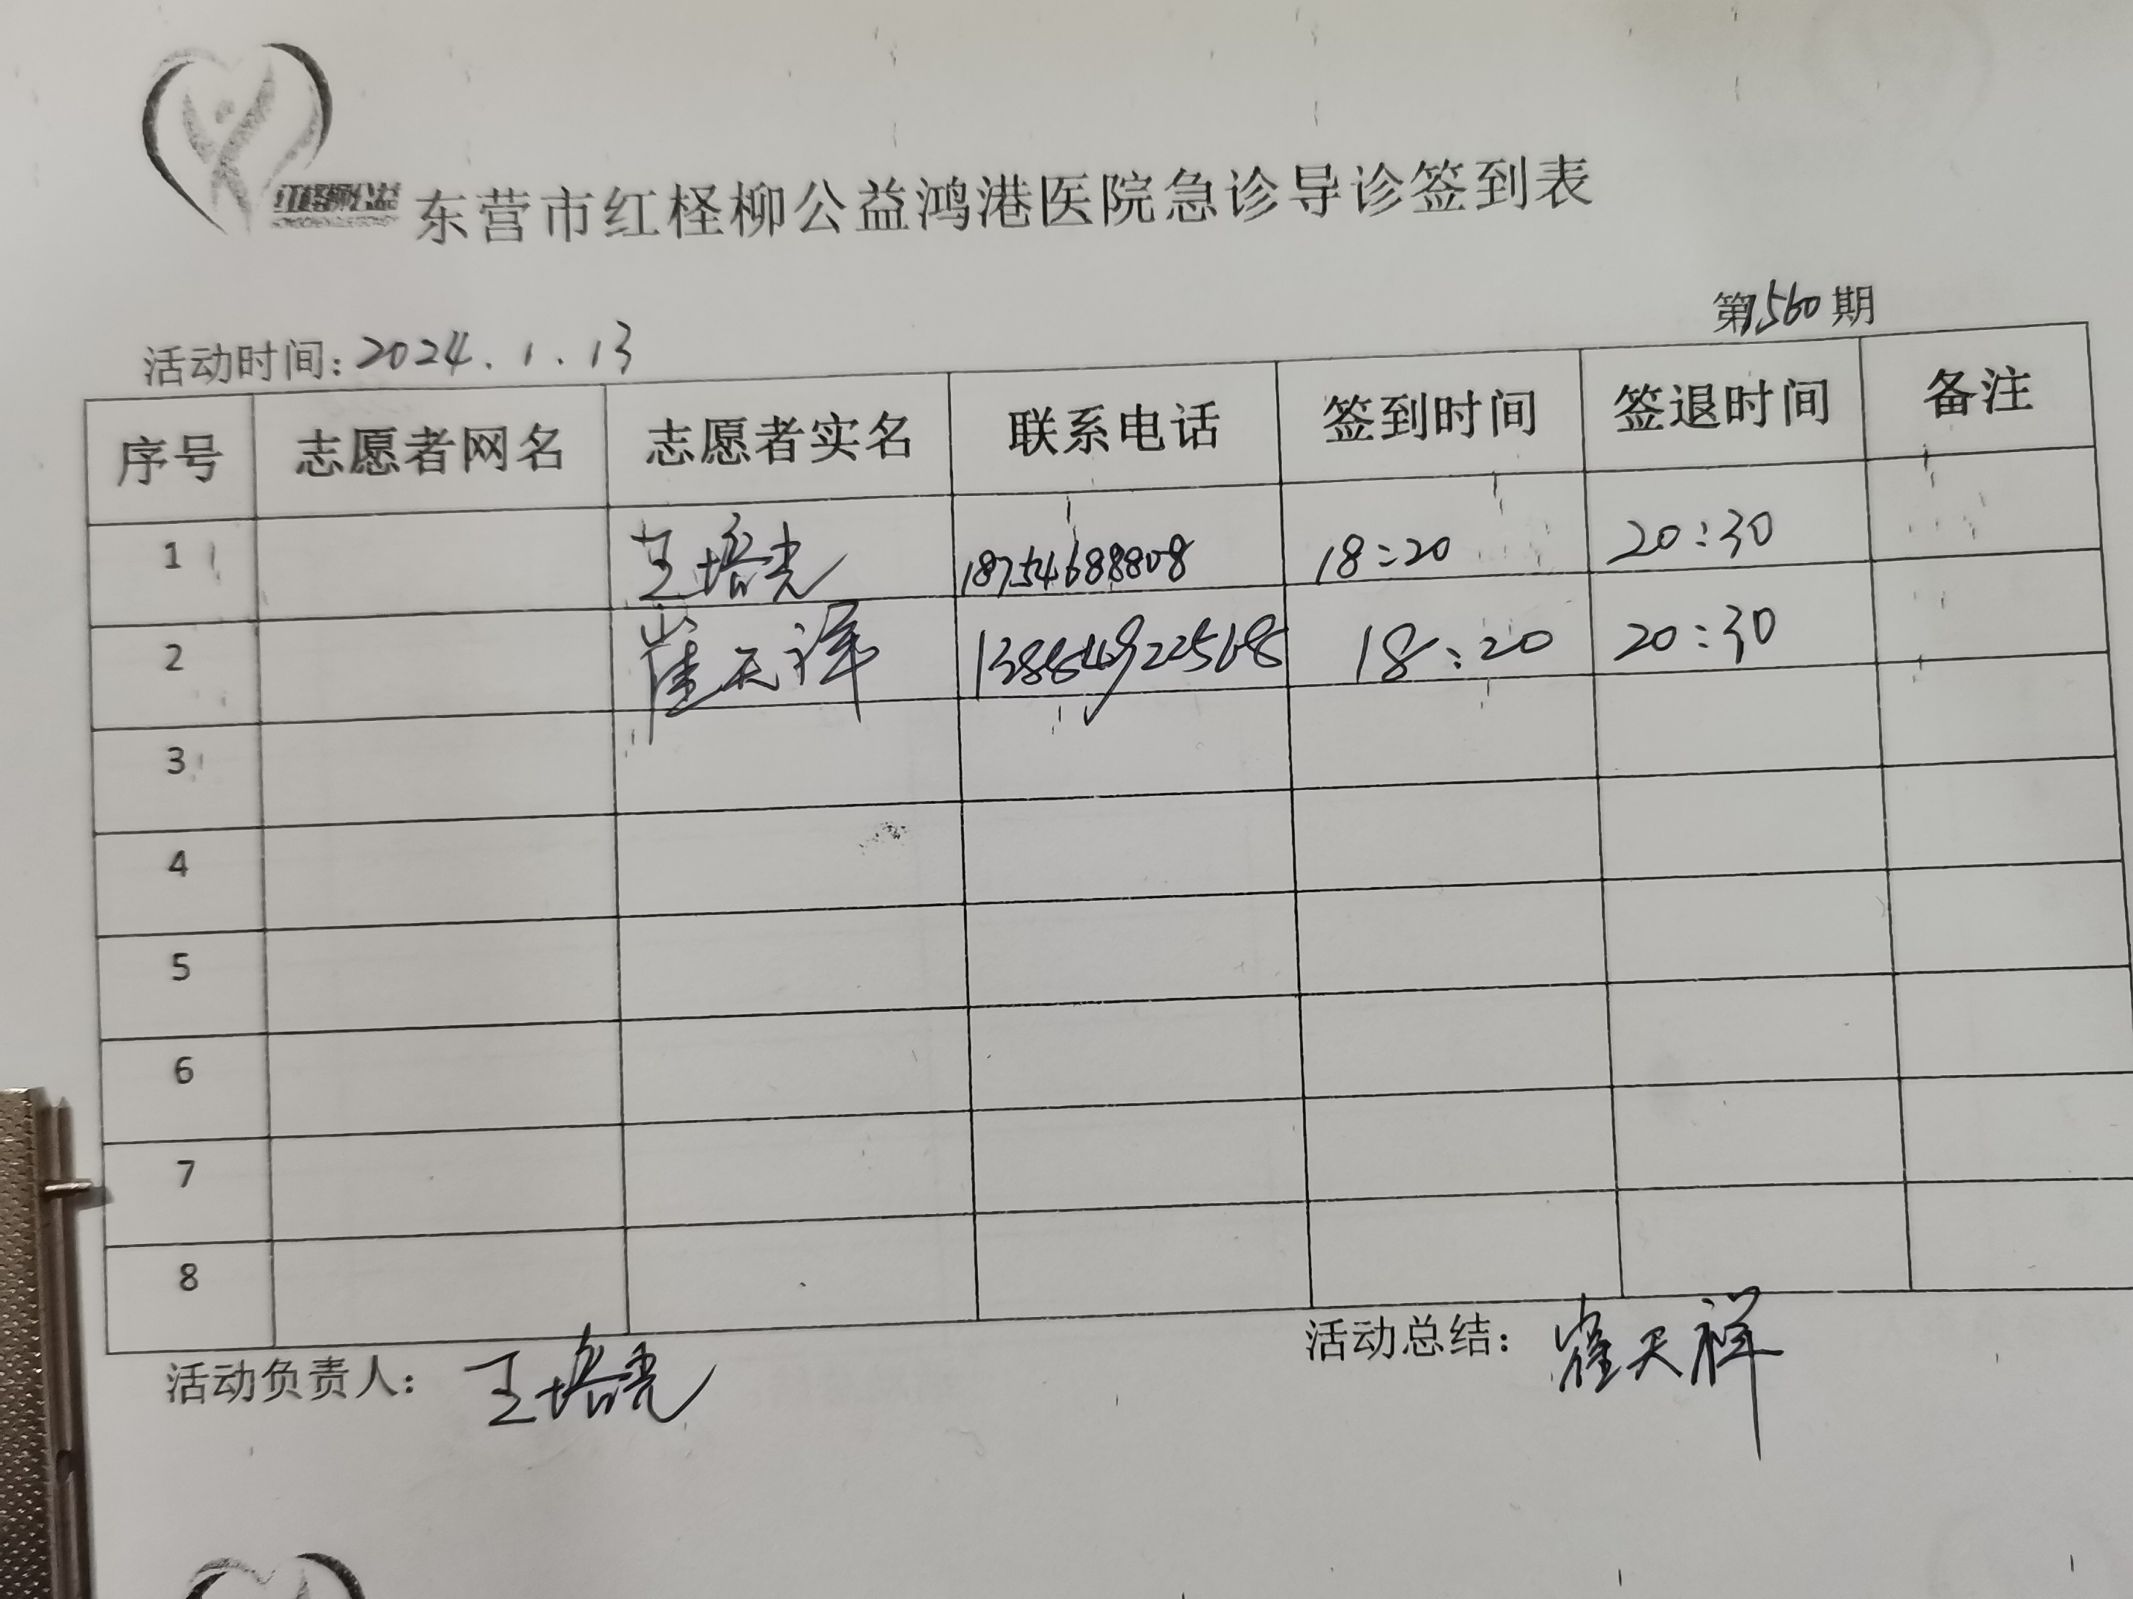 红柽柳公益 东营市红柽柳公益鸿港医院急诊导诊签到表
第1560期
活动时间:2024.1.13
序号 志愿者网名 志愿者实名 联系电话 签到时间 签退时间 备注
1 王培光 18754688808 18:20 20:30
2 崔天祥 13884922568 18:20 20:30
3
4
5
6
7
8
活动负责人: 王培光 活动总结: 崔天祥